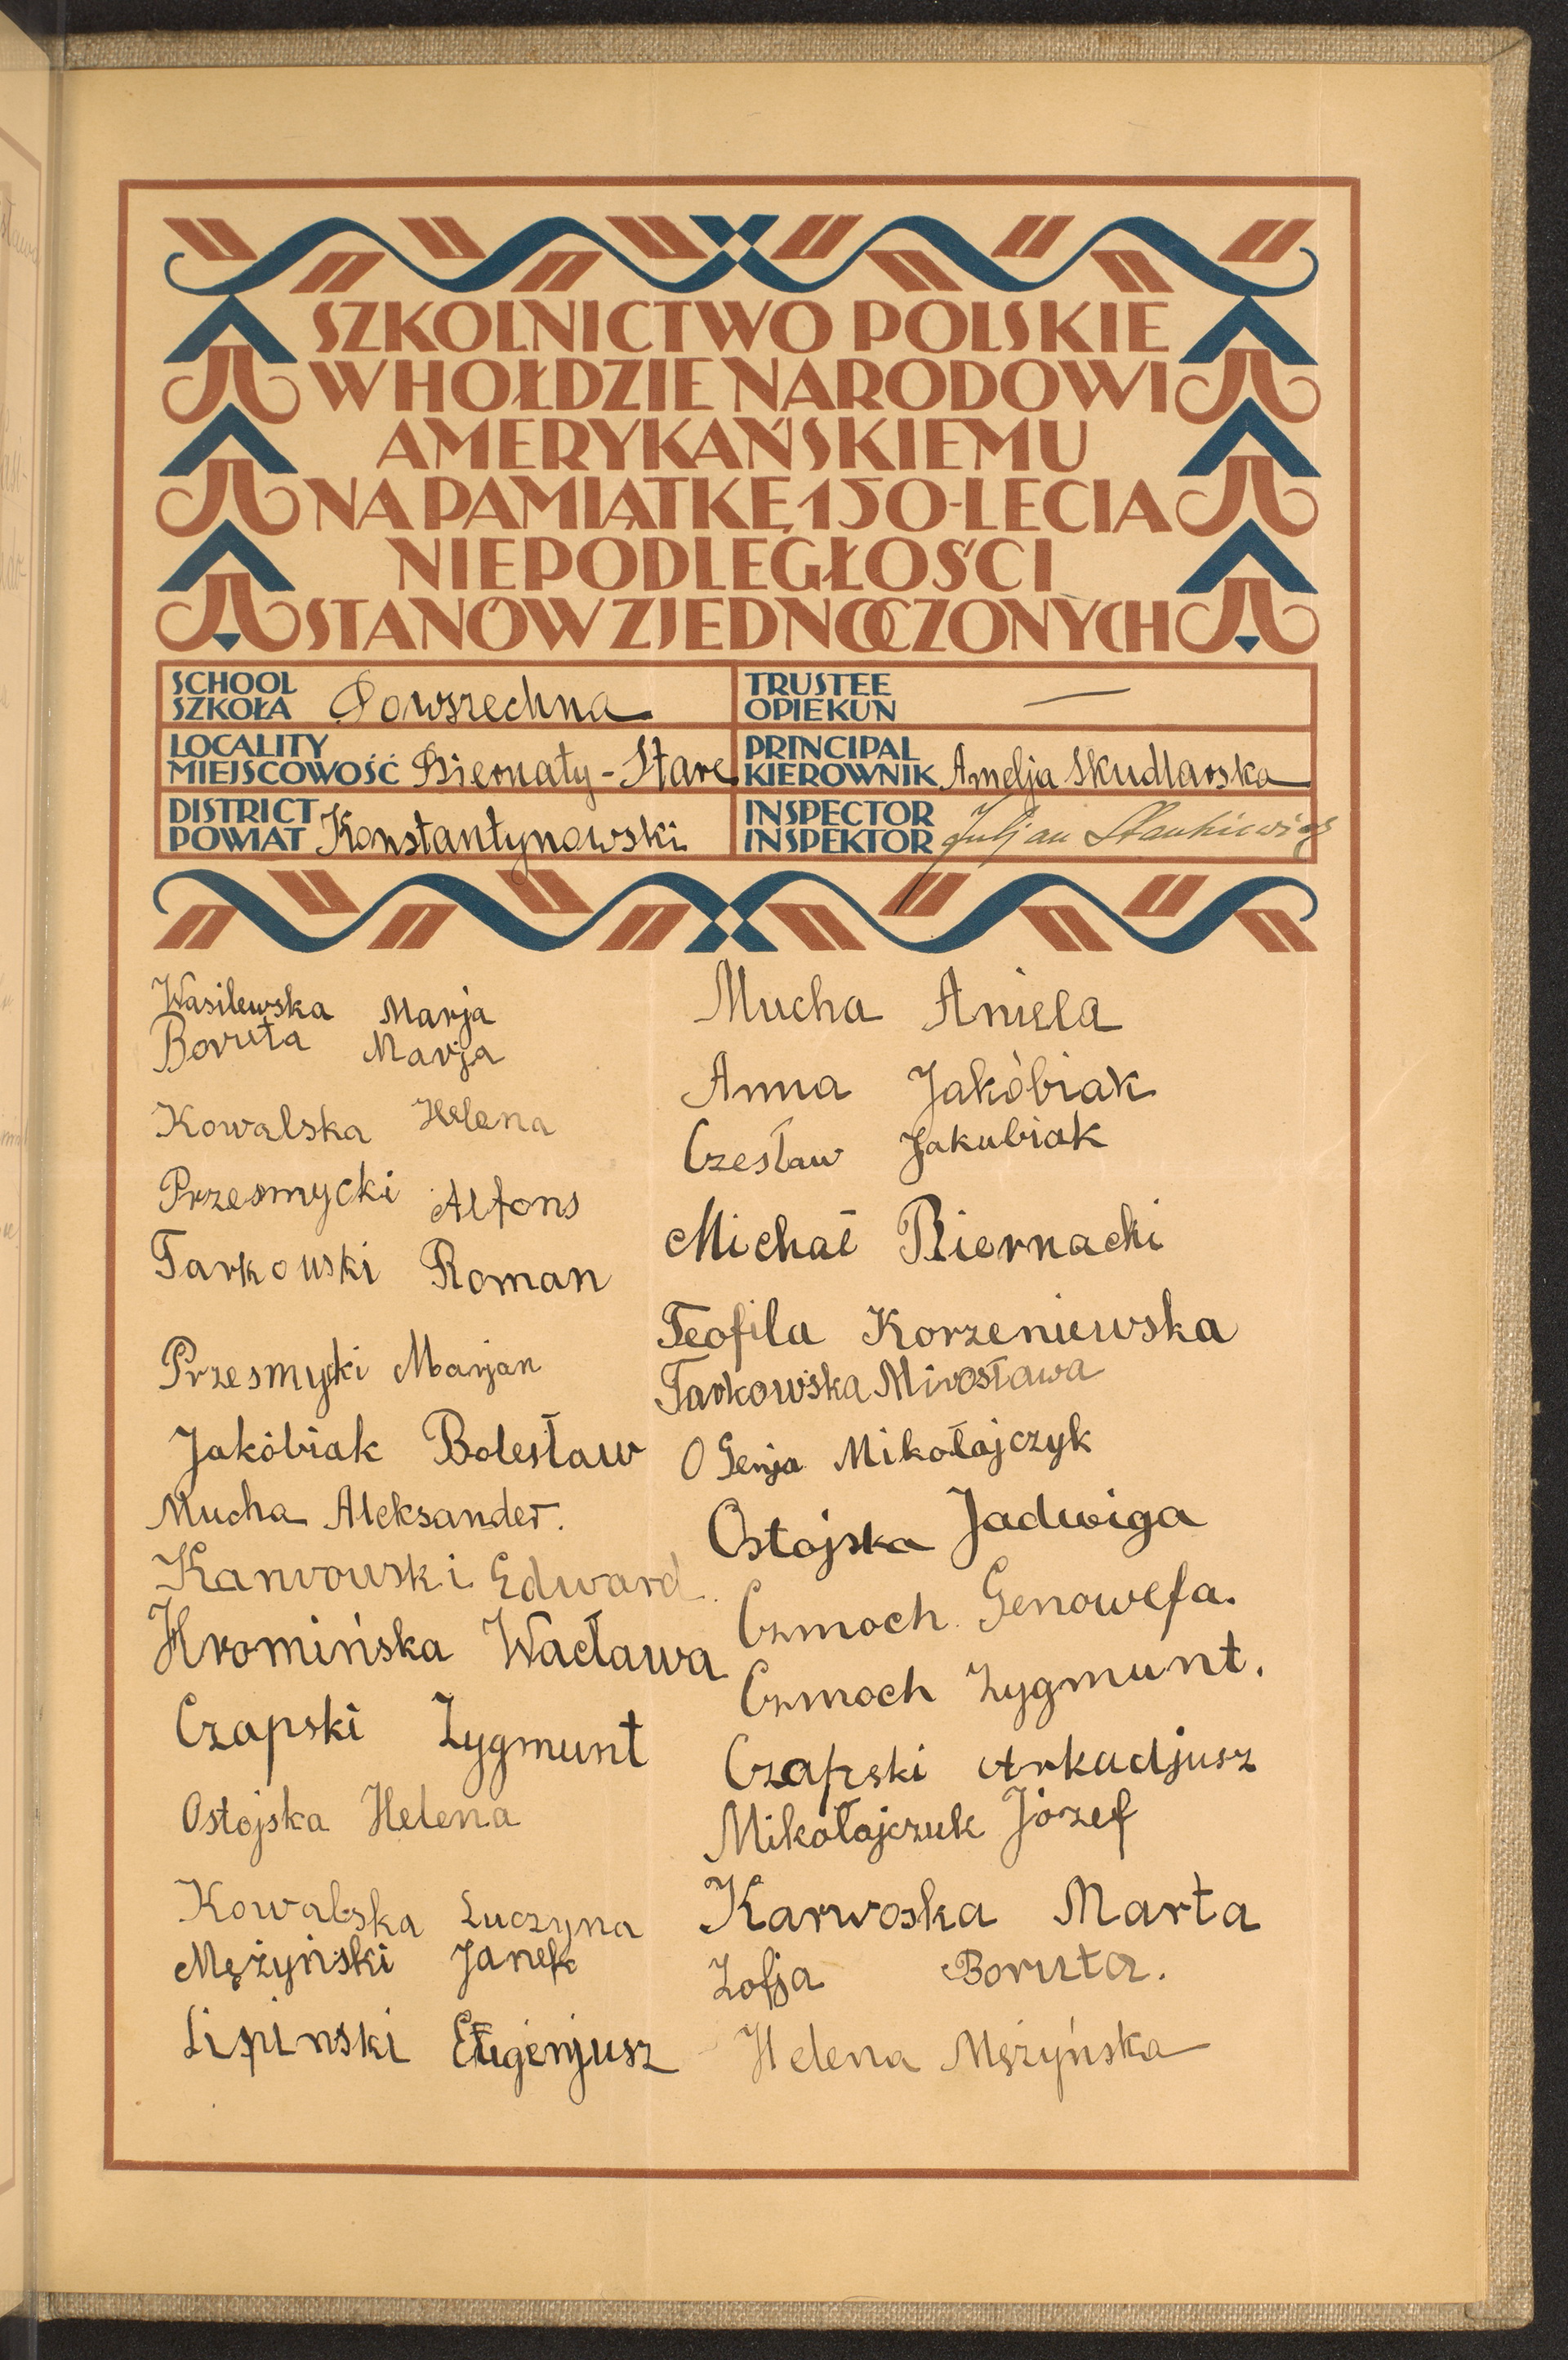 SZKOLNICTWO POLSKIE
W HOŁDZIE NARODOWI
AMERYKAŃSKIEMU
NA PAMIĄTKĘ 150-LECIA
NIEPODLEGŁOŚCI
STANÓW ZJEDNOCZONYCH
SCHOOL
SZKOŁA Powszechna
TRUSTEE
OPIEKUN —
LOCALITY
MIEJSCOWOŚĆ Biernaty-Stare
PRINCIPAL
KIEROWNIK Amelja Skudlarska
DISTRICT
POWIAT Konstantynowski
INSPECTOR
INSPEKTOR Juljan Stankiewicz
Wasilewska Marja
Boruta Marja
Kowalska Helena
Przesmycki Alfons
Tarkouski Roman
Przesmycki Marjan
Jakóbiak Bolesław
Mucha Aleksander.
Karwouski Edward.
Hromińska Wacława
Czapski Zygmunt
Ostojska Helena
Kowalska Luczyna
Mężyński Janek
Lipinski Eugienjusz
Mucha Aniela
Anna Jakóbiak
Czesław Jakubiak
Michał Biernacki
Teofila Korzeniewska
Tarkowska Mirosława
Genja Mikołajczyk
Ostojska Jadwiga
Czmoch Genowefa.
Czmoch Zygmunt.
Czapski Arkadjusz
Mikołajczuk Józef
Karwoska Marta
Zofja Boruta.
Helena Mężyńska